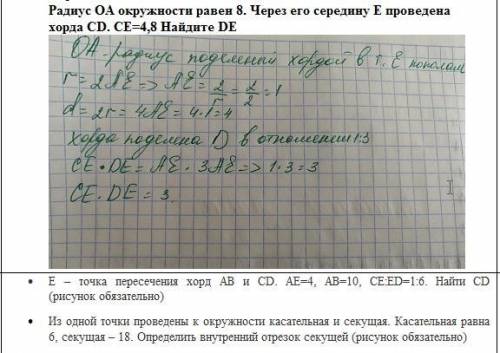 Радиус ОА окружности равен 8. Через его середину Е проведена
хорда CD. СЕ=4,8 Найдите DE
OA - радиус поделеный хордой в т. E пополам
r = 2AE => AE = 2/r = 2/2 = 1
d = 2r = 4AE = 4·1 = 4
хорда поделена D в отношении 1:3
CE · DE = AE · 3AE => 1·3 = 3
CE · DE = 3.
• Е – точка пересечения хорд АВ и CD. АЕ=4, АВ=10, СЕ:ED=1:6. Найти CD
(рисунок обязательно)
• Из одной точки проведены к окружности касательная и секущая. Касательная равна
6, секущая – 18. Определить внутренний отрезок секущей (рисунок обязательно)